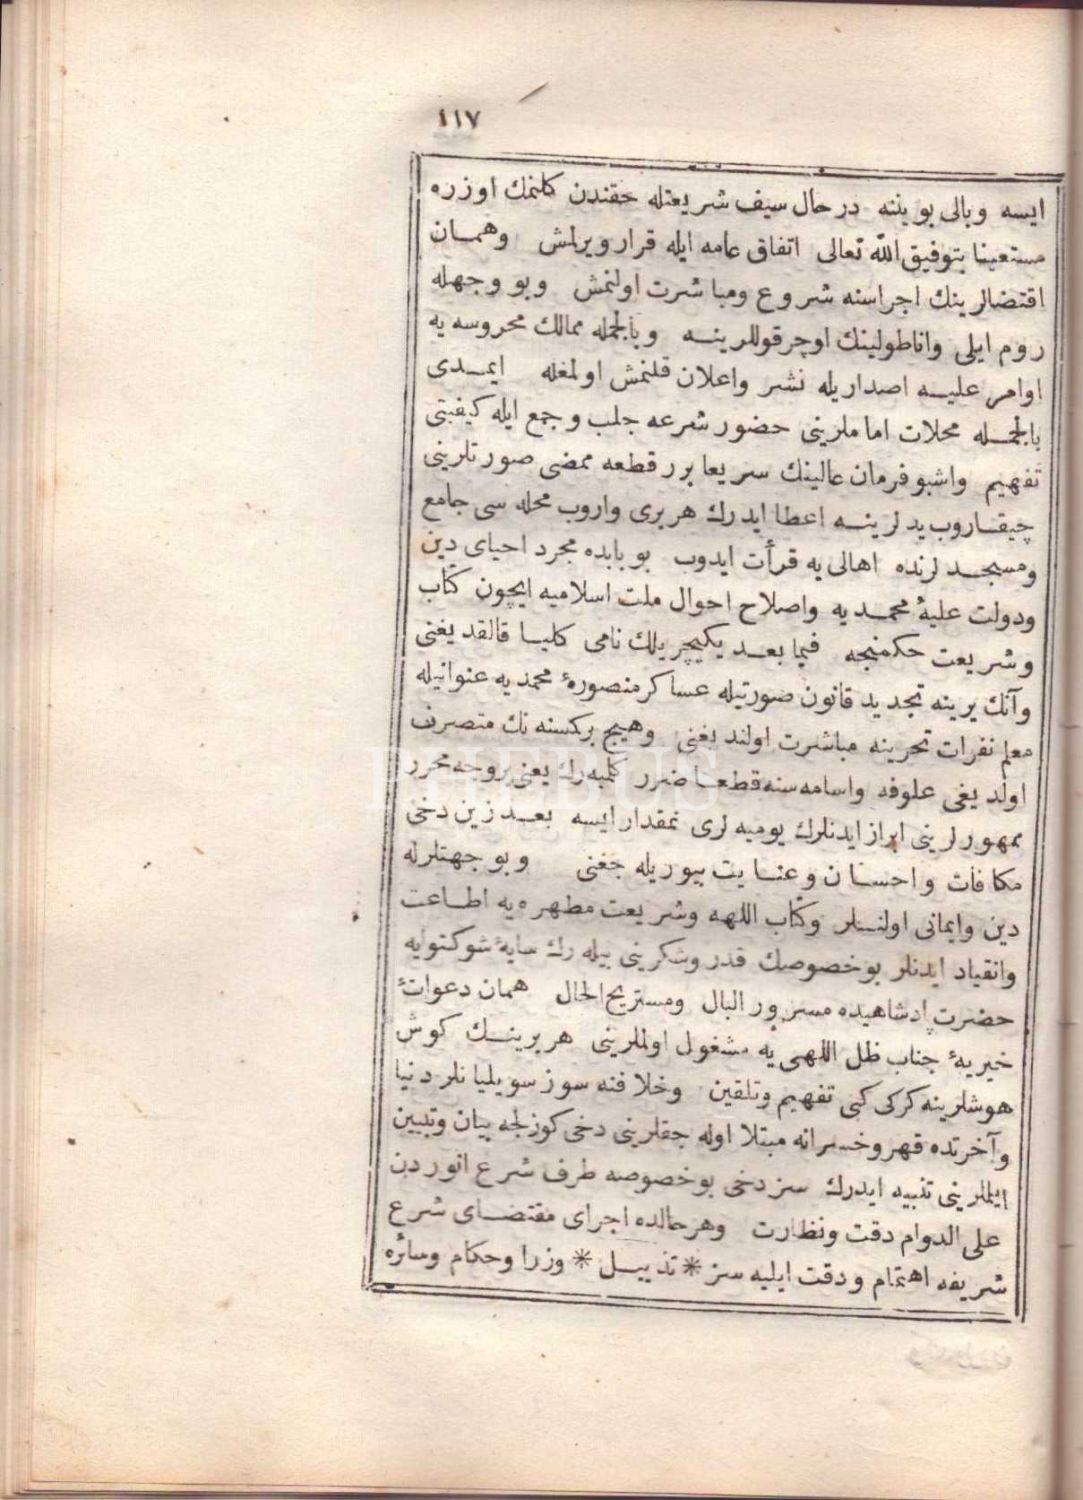 ١١٧
ايسه وبالى بوينه درحال سيف شريعتله حقندن كلنمك اوزره
مستعينا بتوفيق الله تعالى اتفاق عامه ايله قرار ويرلمش وهمان
اقتضالرينك اجراسنه شروع ومباشرت اولنمش وبو وجهله
روم ايلى واناطولينك اوچر قوللرينه وبالجمله ممالك محروسه يه
اوامر عليه اصداريله نشر واعلان قلنمش اولمغله ايمدى
بالجمله محلات اماملرينى حضور شرعه جلب وجمع ايله كيفيتى
تفهيم واشبو فرمان عالينك سريعا برر قطعه ممضى صورتلرينى
چيقاروب يدلرينه اعطا ايدرك هربرى واروب محله سى جامع
ومسجدلرنده اهالى يه قرأت ايدوب بو بابده مجرد احياى دين
ودولت عليهٔ محمديه واصلاح احوال ملت اسلاميه ايچون كتاب
وشريعت حكمنجه فيما بعد يكيچريلك نامى كليا قالقديغنى
وآنك يرينه تجديد قانون صورتيله عساكر منصورهٔ محمديه عنوانيله
معلم نفرات تحريرينه مباشرت اولنديغنى وهيچ بركسنه نك متصرف
اولديغى علوفه واسامه سنه قطعا ضرر كلميه رك يعنى بروجه محرر
ممهورلرينى ابراز ايدنلرك يوميه لرى نمقدار ايسه بعد زين دخى
مكافات واحسان وعنايت بيوريله جغنى وبو جهتلرله
دين وايمانى اولنلر وكتاب اللهه وشريعت مطهره يه اطاعت
وانقياد ايدنلر بو خصوصك قدر وشكرينى بيله رك سايهٔ شوكتوايه
حضرت پادشاهيده مسرور البال ومستريح الحال همان دعوات
خيريهٔ جناب ظل اللهى يه مشغول اولملرينى هربرينك كوش
هوشلرينه كركى كبى تفهيم وتلقين وخلافنه سوز سويليانلر دنيا
وآخرتده قهر وخسرانه مبتلا اوله جقلرينى دخى كوزلجه بيان وتبيين
ايلملرينى تنبيه ايدرك سز دخى بو خصوصه طرف شرع انوردن
على الدوام دقت ونظارت وهرحالده اجراى مقتضاى شرع
شريفه اهتمام ودقت ايليه سز * تذييل * وزرا وحكام وسائره
PHEBUS